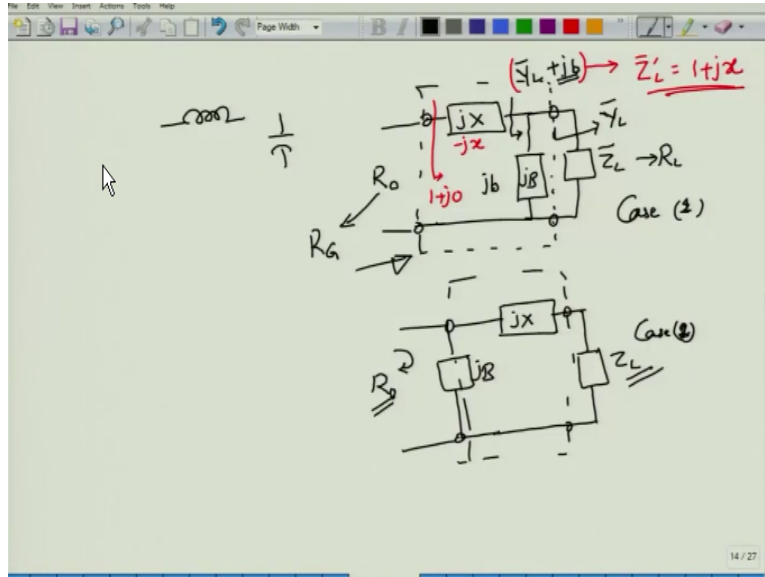 File Edit View Insert Actions Tools Help
Page Width
B I
(ȳL + jb) → z̄'L = 1+jx
jX
-jx
ȳL
R0
1+j0
jb
jB
z̄L → RL
RG
Case (1)
jX
Case (2)
jB
ZL
R0
14 / 27